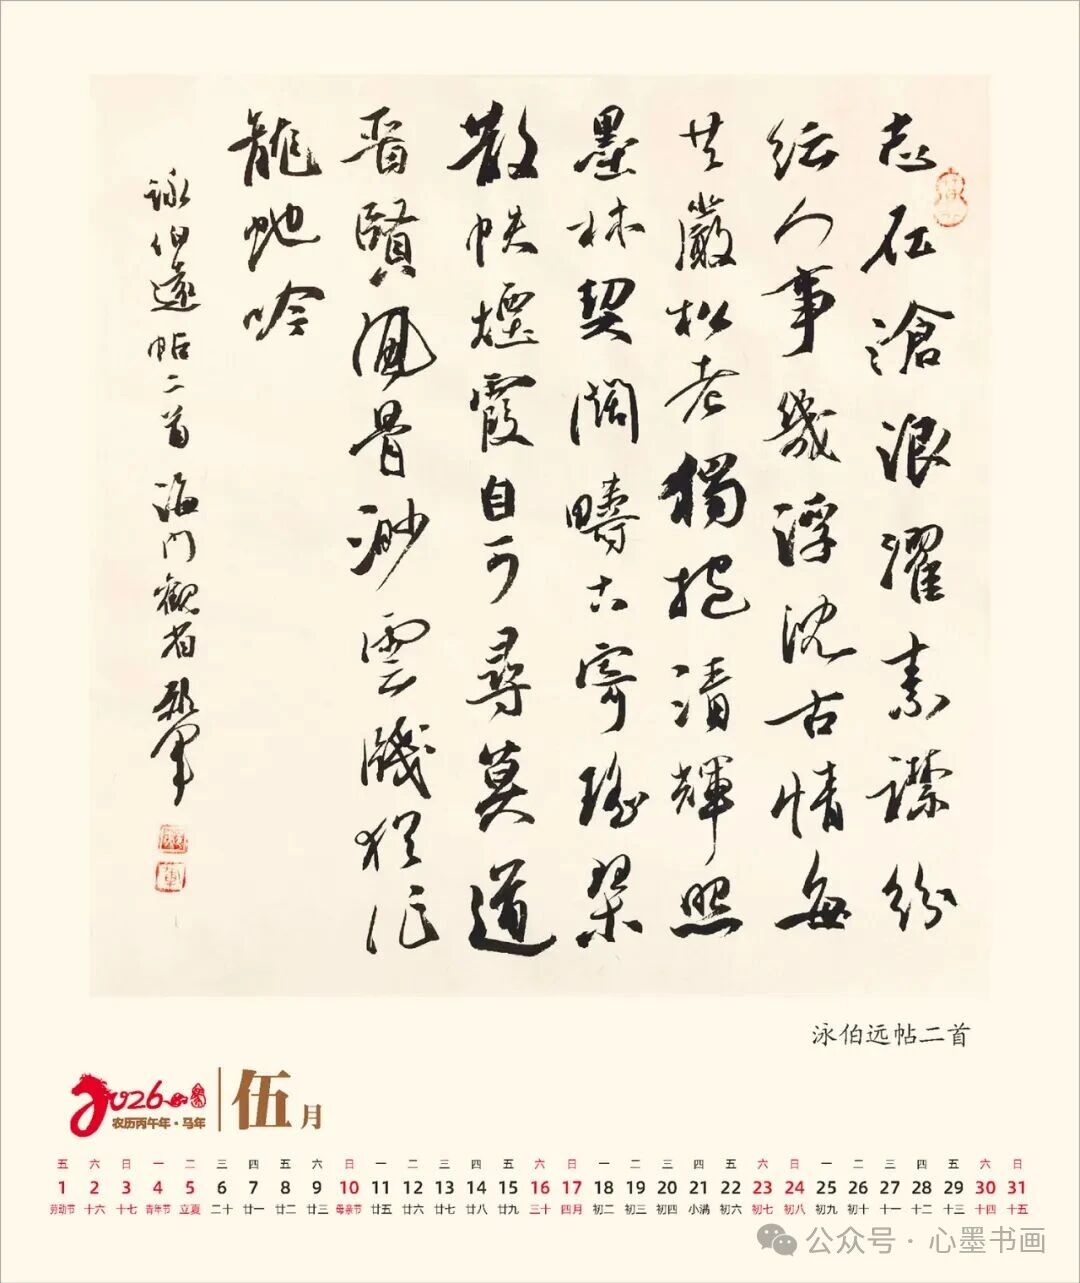 志在滄浪濯素襟紛
紜人事幾浮沈古情每
共巖松老獨抱清輝照
墨林契闊疇古寄瑤琴
散帙煙霞自可尋莫道
晉賢風骨渺雲牋猶作
龍蛇吟
詠伯遠帖二首海門觀省
泳伯远帖二首
2026
农历丙午年·马年
伍月
五 六 日 一 二 三 四 五 六 日 一 二 三 四 五 六 日 一 二 三 四 五 六 日 一 二 三 四 五 六 日
1 2 3 4 5 6 7 8 9 10 11 12 13 14 15 16 17 18 19 20 21 22 23 24 25 26 27 28 29 30 31
劳动节 十六 十七 青年节 立夏 二十 廿一 廿二 廿三 母亲节 廿五 廿六 廿七 廿八 廿九 三十 四月 初二 初三 初四 小满 初六 初七 初八 初九 初十 十一 十二 十三 十四 十五
公众号·心墨书画